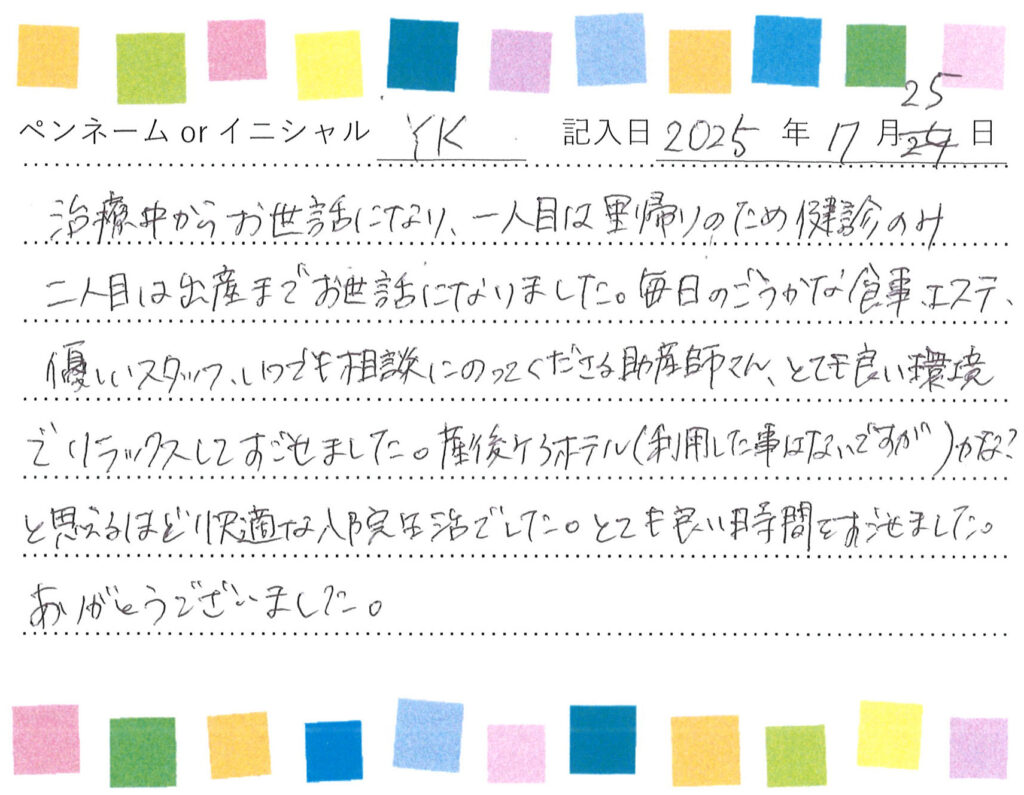 ペンネーム or イニシャル YK 記入日 2025 年 17 月 25 日
治療中からお世話になり、一人目は里帰りのため健診のみ
二人目は出産までお世話になりました。毎日のごうかな食事、エステ、
優しいスタッフ、いつでも相談にのってくださる助産師さん、とても良い環境
でリラックスしてすごせました。産後ケアホテル(利用した事はないですが)かな?
と思えるほど快適な入院生活でした。とても良い時間をすごせました。
ありがとうございました。